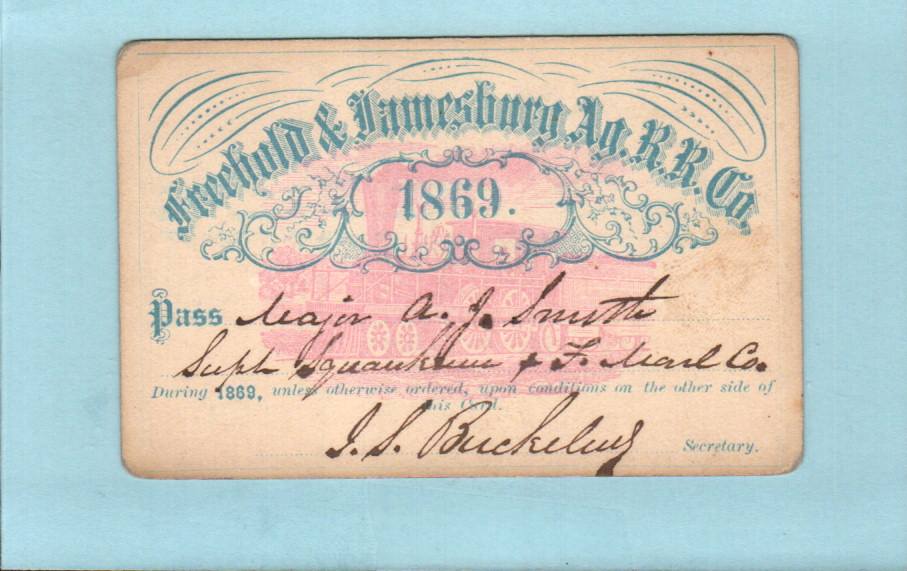 Freehold & Jamesburg Ag. R. R. Co.
1869.
Pass Major A. J. Smith
Supt Squankum & F. Marl Co.
During 1869, unless otherwise ordered, upon conditions on the other side of
this Card.
I. S. Buckelew Secretary.